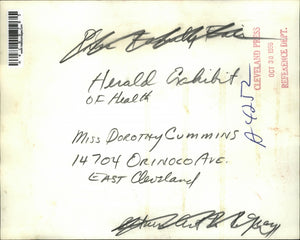 Herald Exhibit
OF Health
Miss Dorothy Cummins
14704 Orinoco Ave.
East Cleveland
CLEVELAND PRESS
OCT 30 1956
REFERENCE DEPT.